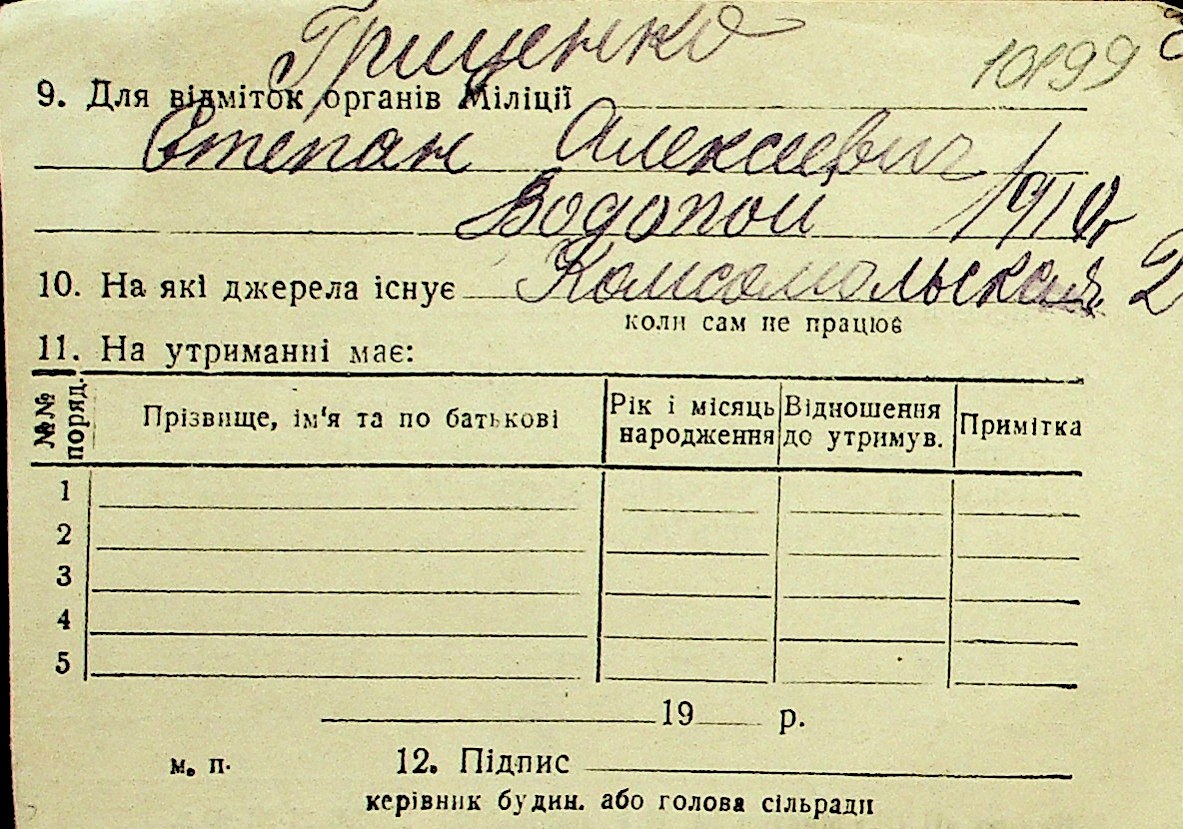 Грищенко 10199
9. Для відміток органів Міліції
Степан Алексеевич
Водопой 1910г
10. На які джерела існує Комсомольская 2
коли сам не працює
11. На утриманні має:
№№ поряд. Прізвище, ім'я та по батькові Рік і місяць народження Відношення до утримув. Примітка
1
2
3
4
5
19 р.
м. п. 12. Підпис
керівник будин. або голова сільради